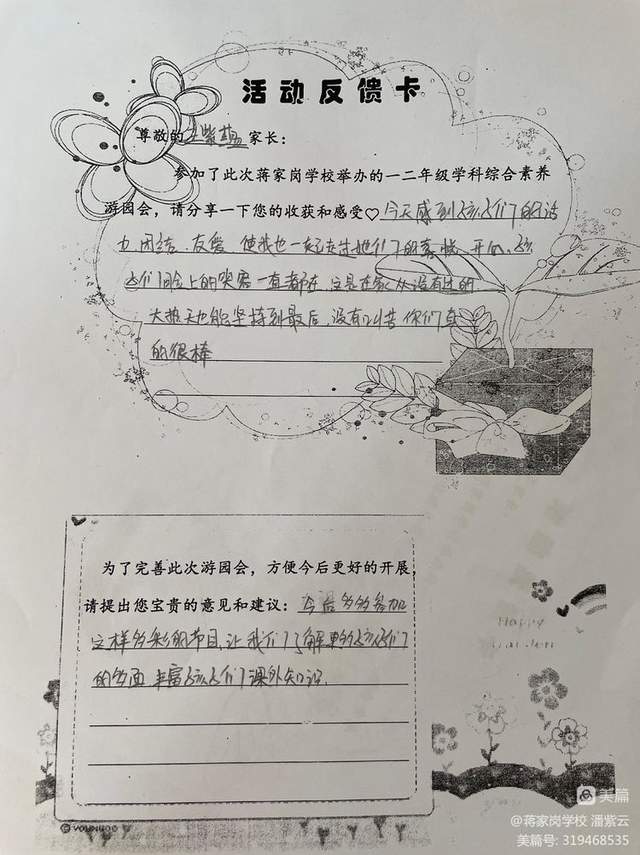 活动反馈卡
尊敬的王紫 家长：
参加了此次蒋家岗学校举办的一二年级学科综合素养
游园会，请分享一下您的收获和感受♡今天感到孩子们的活
力、团结、友爱、使我也一起走进她们的喜悦、开心、孩
子们脸上的笑容一直都在，这是在家从没有过的
大热天也能坚持到最后，没有叫苦你们真
的很棒
为了完善此次游园会，方便今后更好的开展，
请提出您宝贵的意见和建议：今后多多参加
这样多彩的节目，让我们了解更多孩子们
的多面，丰富孩子们课外知识.
Happy
Garden
© YOUNGOO
美篇
@蒋家岗学校 潘紫云
美篇号: 319468535